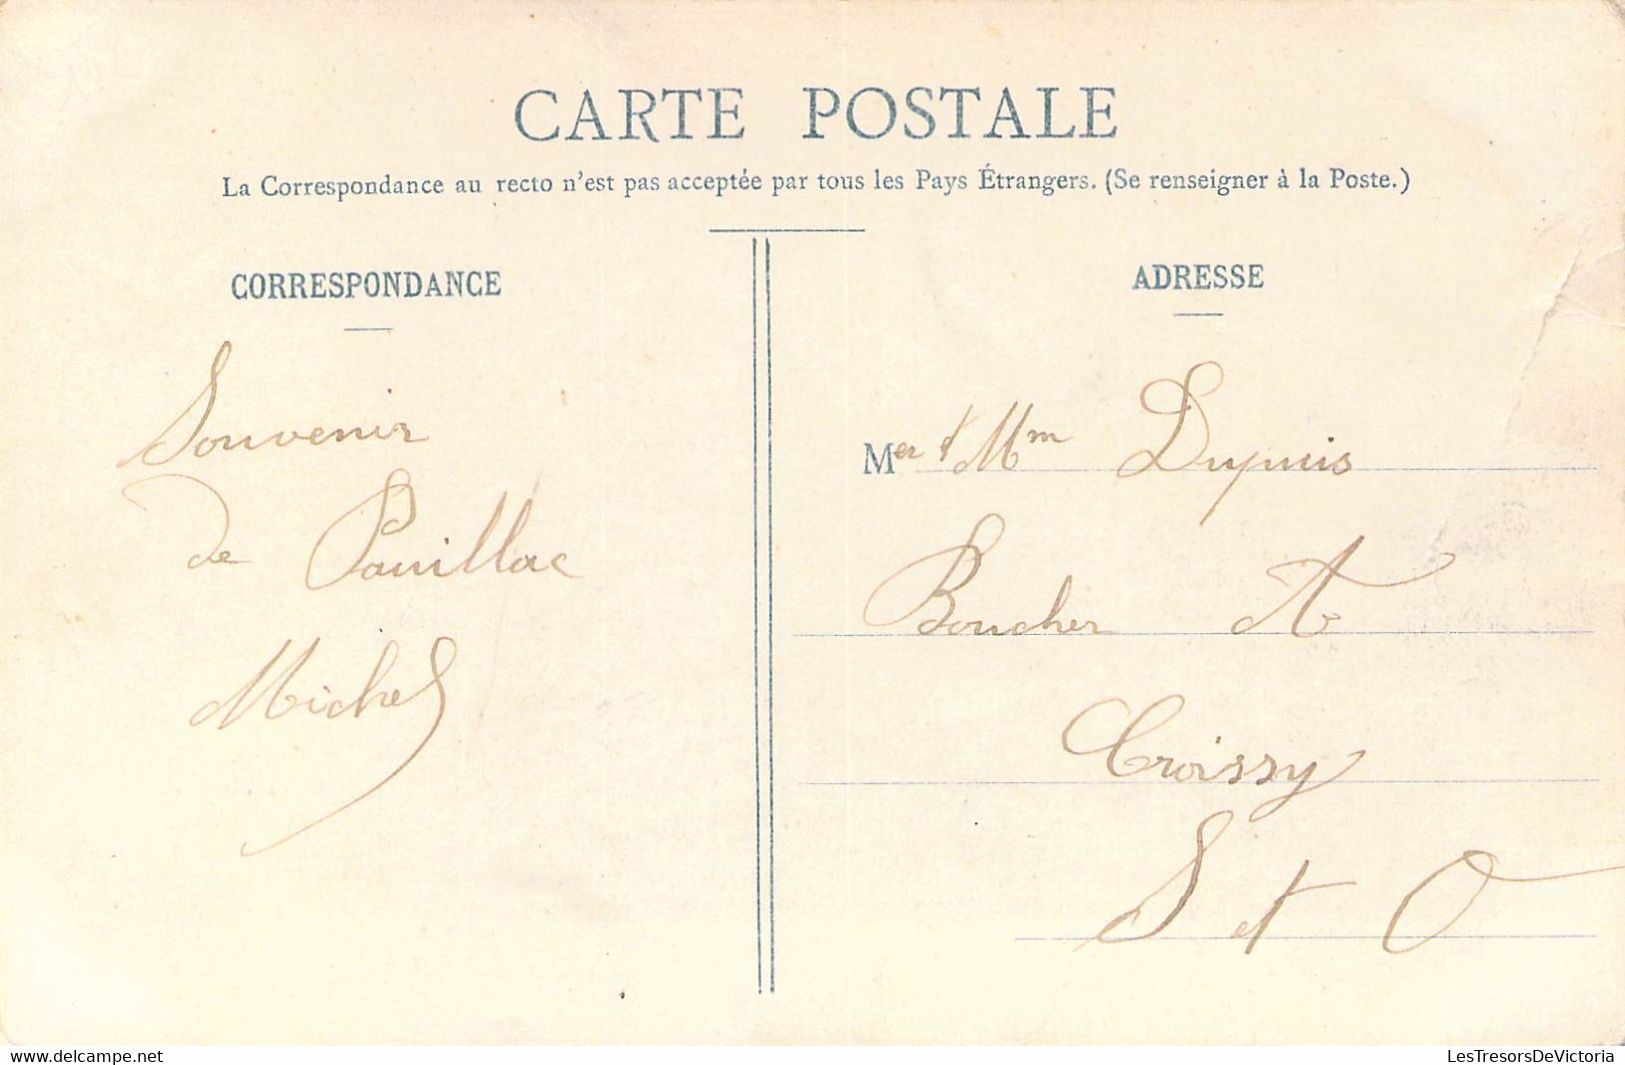 CARTE POSTALE
La Correspondance au recto n'est pas acceptée par tous les Pays Étrangers. (Se renseigner à la Poste.)
CORRESPONDANCE
Souvenir
de Pauillac
Michel
ADRESSE
Mer et Mm Dupuis
Boucher A
Croissy
S et O
delcampe.net
LesTresorsDeVictoria